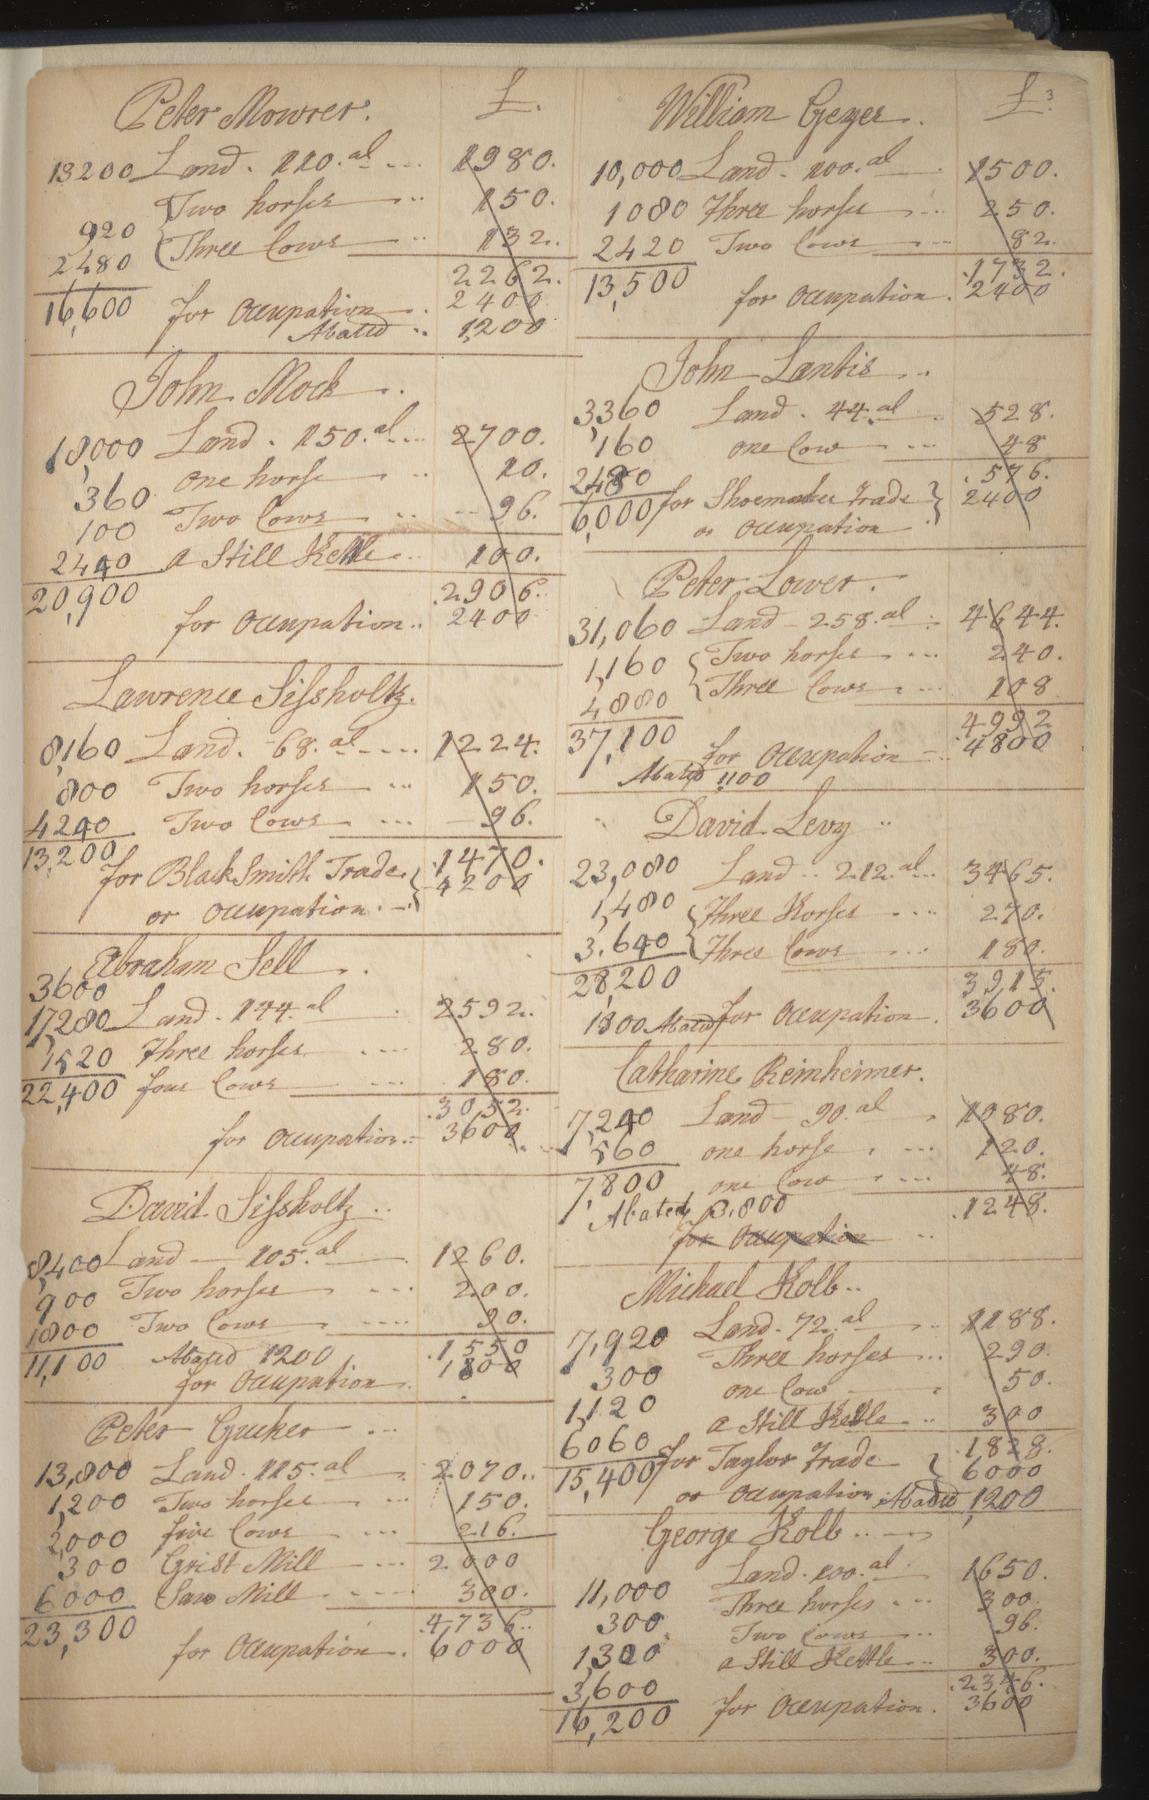 Peter Mowrer. £.
13200 Land. 110. al 1980.
Two horses 150.
920 Three Cows 132.
2480 2262.
16,600 for Occupation 2400
Abated 1200
John Mock
18,000 Land. 150. al 2700.
one horse 10.
360 Two Cows 96.
100
2440 a Still Kettle 100.
20,900 2906.
for Occupation 2400
Lawrence Sissholtz.
8,160 Land. 68. al 1224.
800 Two horses 150.
4240 Two Cows 96.
13,200 1470.
for BlackSmith Trade 4200
or Occupation
Abraham Sell
3600
17280 Land. 144. al 2592.
1,520 Three horses 280.
22,400 four Cows 180.
3052.
for Occupation 3600
David Sissholtz
8,400 Land 105. al 1260.
900 Two horses 200.
1800 Two Cows 90.
11,100 Abated 1200 1550
for Occupation 1800
Peter Gucker
13,800 Land. 115. al 2070.
1,200 Two horses 150.
2,000 five Cows 216.
300 Grist Mill 2000
6000 Saw Mill 300.
23,300 4736.
for Occupation 6000
William Geyer. £. 3
10,000 Land. 100. al 1500.
1080 Three horses 250.
2420 Two Cows 82.
13,500 1732.
for Occupation 2400
John Lantis
3360 Land. 44. al 528.
160 one Cow 48
2480 576.
6,000 for Shoemaker Trade 2400
or Occupation
Peter Lower.
31,060 Land 258. al 4644.
1,160 Two horses 240.
4880 Three Cows 108
37,100 4992
for Occupation 4800
Abated 1100
David Levy
23,080 Land 212. al 3465.
1,480 Three Horses 270.
3.640 Three Cows 180.
28,200 3915.
1800 Abated for Occupation 3600
Catharine Reinheimer.
7,240 Land 90. al 1080.
560 one horse 120.
7,800 one Cow 48.
Abated 3.800 1248.
for Occupation
Michael Kolb
7,920 Land. 72. al 1188.
300 Three horses 290.
1,120 one Cow 50.
6060 a Still Kettle 300
1828.
15,400 for Taylor Trade 6000
or Occupation Abated 1,200
George Kolb
11,000 Land. 100. al 1650.
300 Three horses 300.
1,300 Two Cows 96.
a Still Kettle 300.
3,600 2346.
16,200 for Occupation. 3600